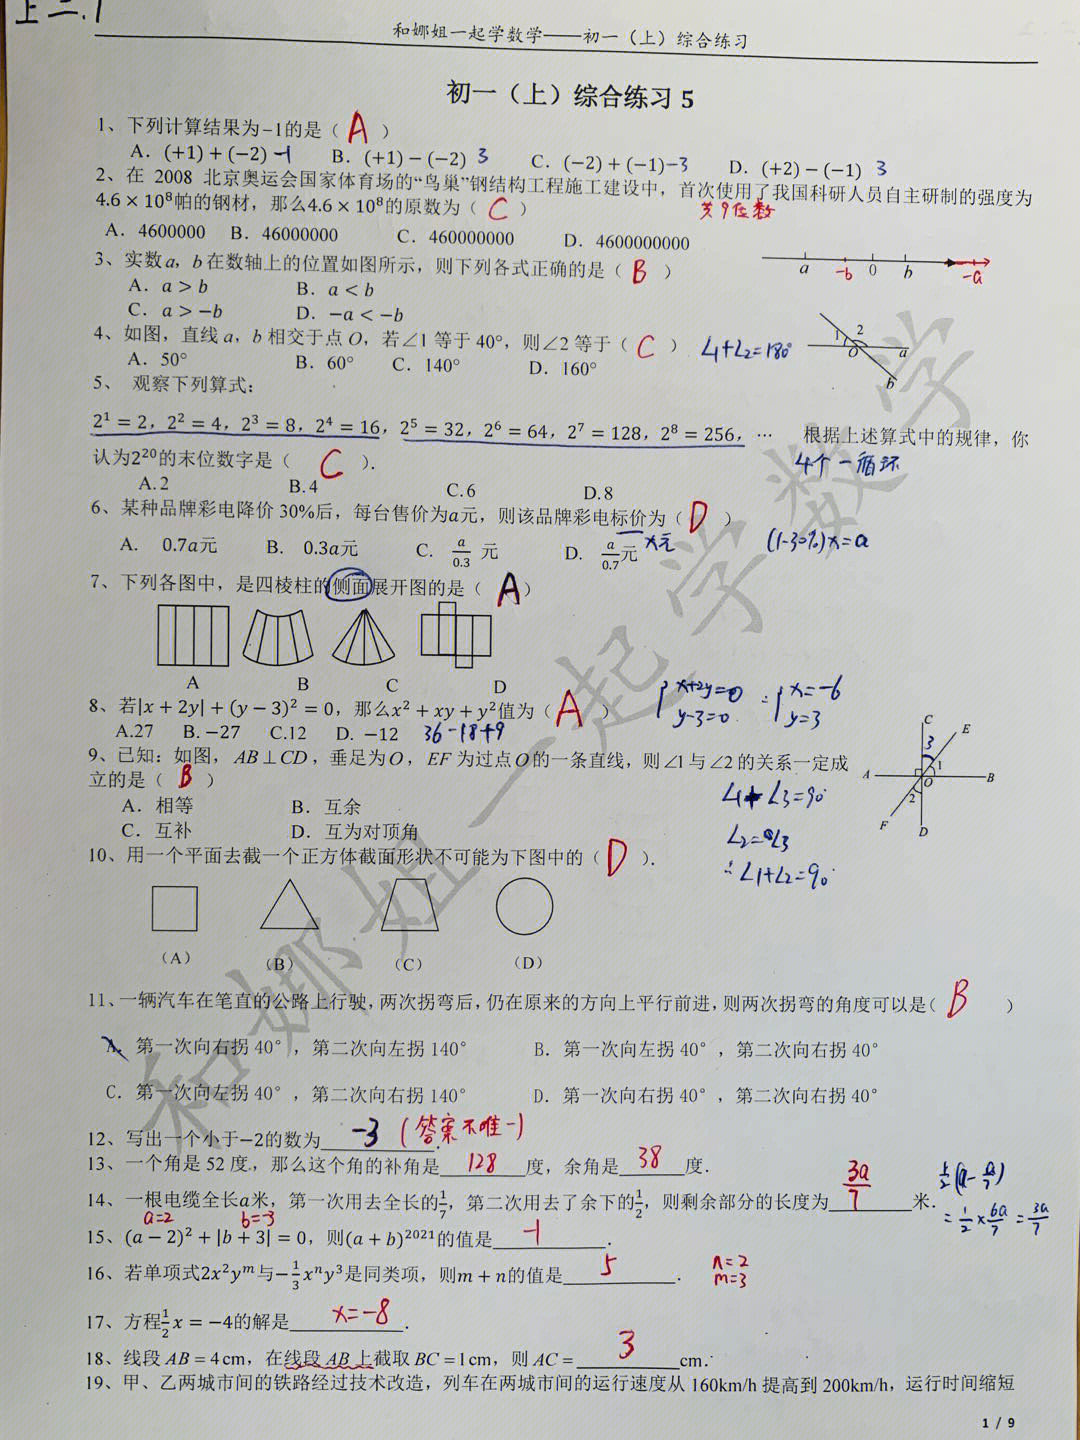 上二.1
和娜姐一起学数学——初一（上）综合练习
初一（上）综合练习 5
1、下列计算结果为−1的是（ A ）
A．(+1) + (−2) -1 B．(+1) − (−2) 3 C．(−2) + (−1) -3 D．(+2) − (−1) 3
2、在 2008 北京奥运会国家体育场的“鸟巢”钢结构工程施工建设中，首次使用了我国科研人员自主研制的强度为
4.6 × 10⁸帕的钢材，那么4.6 × 10⁸的原数为（ C ） 共9位数
A．4600000 B．46000000 C．460000000 D．4600000000
3、实数 a，b 在数轴上的位置如图所示，则下列各式正确的是（ B ）
a -b 0 b -a
A．a > b B．a < b
C．a > −b D．−a < −b
4、如图，直线 a，b 相交于点 O，若∠1 等于 40°，则∠2 等于（ C ） ∠1+∠2=180°
1 2 O a b
A．50° B．60° C．140° D．160°
5、 观察下列算式：
2¹ = 2，2² = 4，2³ = 8，2⁴ = 16，2⁵ = 32，2⁶ = 64，2⁷ = 128，2⁸ = 256，… 根据上述算式中的规律，你
认为2²⁰的末位数字是（ C ）． 4个一循环
A. 2 B. 4 C. 6 D. 8
6、某种品牌彩电降价 30%后，每台售价为a元，则该品牌彩电标价为（ D ）
A． 0.7a元 B． 0.3a元 C． a/0.3 元 D． a/0.7元 x元 (1-30%)x=a
7、下列各图中，是四棱柱的侧面展开图的是（ A ）
A B C D
8、若|x + 2y| + (y − 3)² = 0，那么x² + xy + y²值为（ A ） { x+2y=0 y-3=0 ∴{ x=-6 y=3
A.27 B. −27 C.12 D. −12 36-18+9
9、已知：如图，AB⊥CD，垂足为O，EF 为过点O的一条直线，则∠1与∠2的关系一定成
立的是（ B ）
C E 3 1 A O B 2 F D
A．相等 B．互余 ∠1+∠3=90°
C．互补 D．互为对顶角 ∠2=∠3
10、用一个平面去截一个正方体截面形状不可能为下图中的（ D ）． ∴∠1+∠2=90°
（A） （B） （C） （D）
11、一辆汽车在笔直的公路上行驶，两次拐弯后，仍在原来的方向上平行前进，则两次拐弯的角度可以是（ B ）
A．第一次向右拐 40°，第二次向左拐 140° B．第一次向左拐 40°，第二次向右拐 40°
C．第一次向左拐 40°，第二次向右拐 140° D．第一次向右拐 40°，第二次向右拐 40°
12、写出一个小于−2的数为 -3 (答案不唯一) ．
13、一个角是 52 度，那么这个角的补角是 128 度，余角是 38 度．
14、一根电缆全长a米，第一次用去全长的1/7，第二次用去了余下的1/2，则剩余部分的长度为 3a/7 米．
1/2(a-a/7)
=1/2×6a/7=3a/7
a=2 b=-3
15、(a − 2)² + |b + 3| = 0，则(a + b)²⁰²¹的值是 -1 ．
16、若单项式2x²yᵐ与−1/3xⁿy³是同类项，则m + n的值是 5 ． n=2 m=3
17、方程1/2x = −4的解是 x=-8 ．
18、线段 AB = 4cm，在线段 AB 上截取 BC = 1cm，则 AC = 3 cm．
19、甲、乙两城市间的铁路经过技术改造，列车在两城市间的运行速度从 160km/h 提高到 200km/h，运行时间缩短
1 / 9
和娜姐一起学数学